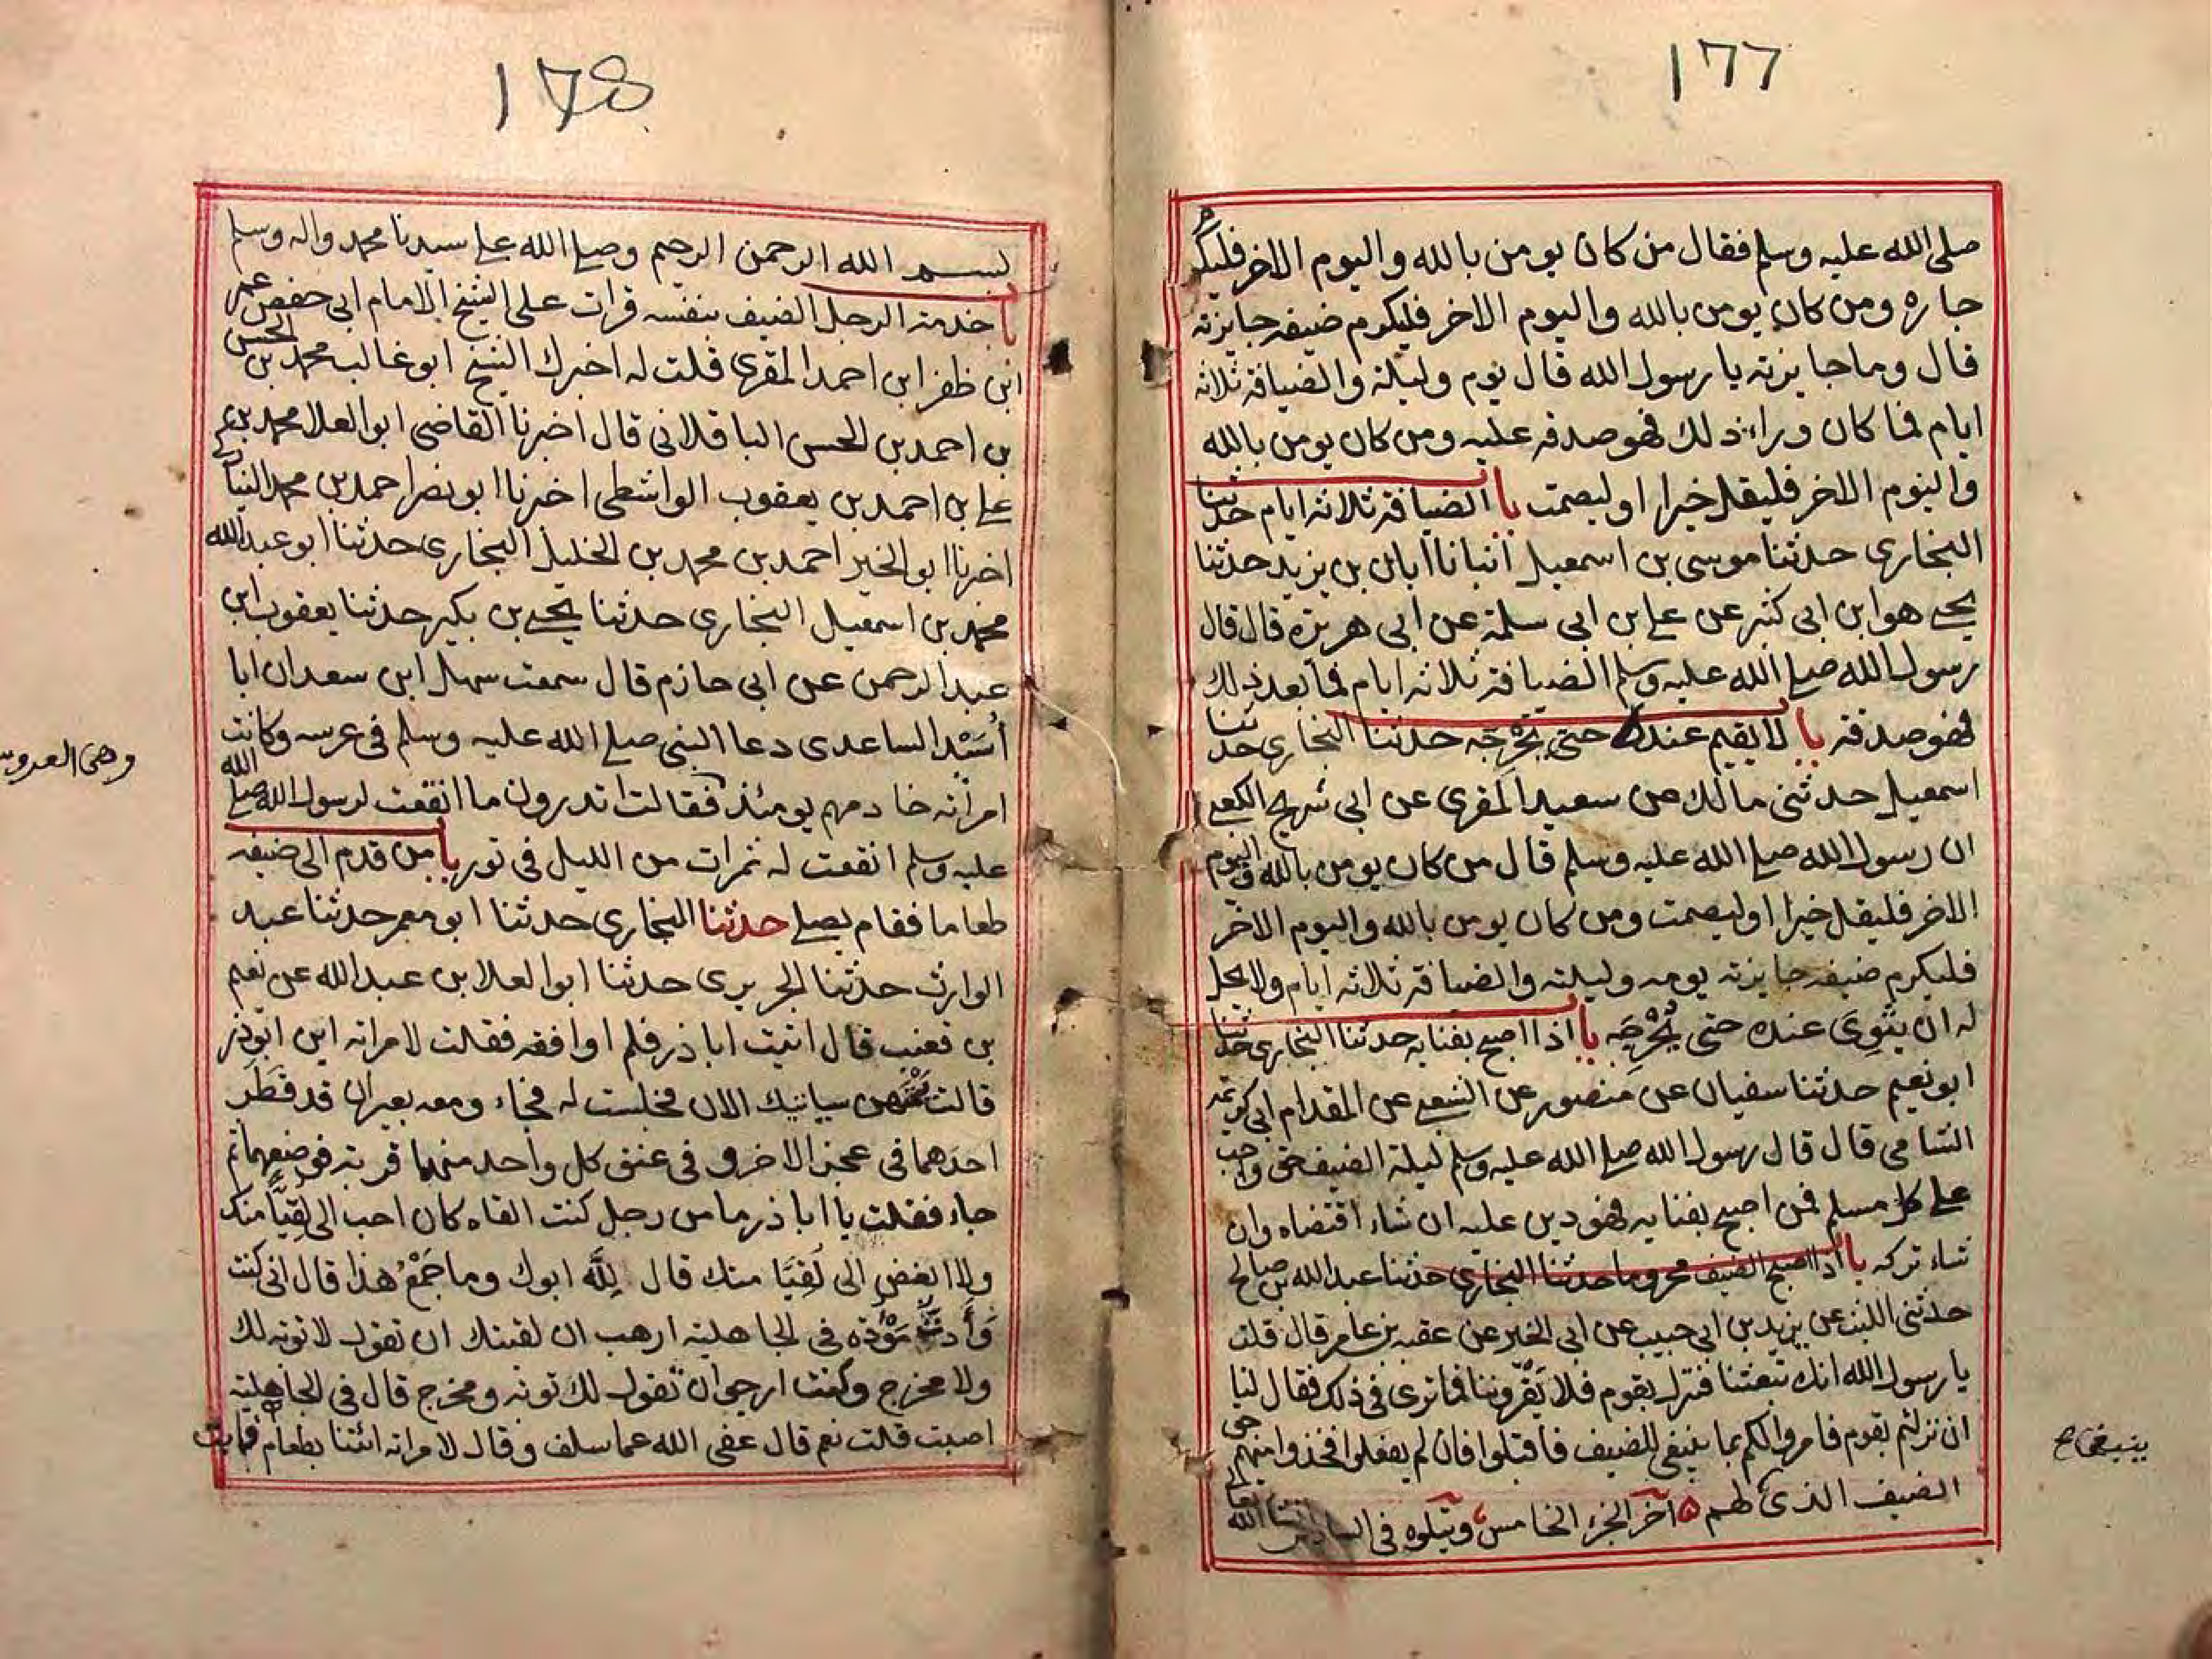 177
صلى الله عليه وسلم فقال من كان يومن بالله واليوم الاخر فليكرم
جاره ومن كان يومن بالله واليوم الاخر فليكرم ضيفه جايزته
قال وما جايزته يا رسول الله قال يوم وليلة والضيافة ثلاثة
ايام فما كان وراء ذلك فهو صدقة عليه ومن كان يومن بالله
واليوم الاخر فليقل خيرا او ليصمت با الضيافة ثلاثة ايام حدثنا
البخاري حدثنا موسى بن اسمعيل انبانا ابان بن يزيد حدثنا
يحيى هو ابن ابي كثير عن علي بن ابي سلمة عن ابي هريرة قال قال
رسول الله صلى الله عليه وسلم الضيافة ثلاثة ايام فما بعد ذلك
فهو صدقة با لا يقيم عنده حتى يخرجه حدثنا البخاري حدثنا
اسمعيل حدثني مالك عن سعيد المقري عن ابي شريح الكعبي
ان رسول الله صلى الله عليه وسلم قال من كان يومن بالله واليوم
الاخر فليقل خيرا او ليصمت ومن كان يومن بالله واليوم الاخر
فليكرم ضيفه جايزته يومه وليلته والضيافة ثلاثة ايام ولا يحل
له ان يثوي عنده حتى يخرجه با اذا اصبح بفنايه حدثنا البخاري حدثنا
ابو نعيم حدثنا سفيان عن منصور عن الشعبي عن المقدام ابي كريمة
الشامي قال قال رسول الله صلى الله عليه وسلم ليلة الضيف حق واجب
على كل مسلم فمن اصبح بفنايه فهو دين عليه ان شاء اقتضاه وان
شاء تركه با اذا اصبح الضيف محروما حدثنا البخاري حدثنا عبد الله بن صالح
حدثني الليث عن يزيد بن ابي حبيب عن ابي الخير عن عقبة بن عامر قال قلت
يا رسول الله انك تبعثنا فننزل بقوم فلا يقروننا فما ترى في ذلك فقال لنا
ان نزلتم بقوم فامروا لكم بما ينبغي للضيف فاقبلوا فان لم يفعلوا فخذوا منهم حق
ينبغي
الضيف الذي لهم ۵ آخر الجزء الخامس ويتلوه في السادس انشا الله تعا
178
بسم الله الرحمن الرحيم وصلى الله على سيدنا محمد واله وسلم
با خدمة الرجل الضيف بنفسه قرات على الشيخ الامام ابي حفص عمر
ابن ظفر ابن احمد المقري قلت له اخبرك الشيخ ابو غالب محمد بن الحسن
بن احمد بن الحسن الباقلاني قال اخبرنا القاضي ابو العلا محمد بن
علي بن احمد بن يعقوب الواشطي اخبرنا ابو نصر احمد بن محمد
اخبرنا ابو الخير احمد بن محمد بن الخليل البخاري حدثنا ابو عبد الله
محمد بن اسمعيل البخاري حدثنا يحيى بن بكير حدثنا يعقوب ابن
عبد الرحمن عن ابي حازم قال سمعت سهل ابن سعد ان ابا
أسَيْد الساعدي دعا النبي صلى الله عليه وسلم في عرسه وكانت
وهى العروس
امراته خادمهم يومئذ فقالت اتدرون ما انقعت لرسول الله صلى الله
عليه وسلم انقعت له تمرات من الليل في تور با من قدم الى ضيفه
طعاما فقام يصلي حدثنا البخاري حدثنا ابو معمر حدثنا عبد
الوارث حدثنا الجريري حدثنا ابو العلا بن عبد الله عن نعيم
بن قعنب قال اتيت ابا ذر فلم اوافقه فقلت لامراته اين ابو ذر
قالت يمتهن سياتيك الان فجلست له فجاء ومعه بعيران قد قطر
احدهما في عجز الاخر وفي عنق كل واحد منهما قربة فوضعهما ثم
جاء فقلت يا ابا ذر ما من رجل كنت القاه كان احب الي لقيا منك
ولا ابغض الي لقيا منك قال لله ابوك وما جمع هذا قال اني كنت
وأدت موؤدة في الجاهلية ارهب ان لقيتك ان تقول لا توبة لك
ولا مخرج وكنت ارجو ان تقول لك توبة ومخرج قال في الجاهلية
اصبت قلت نعم قال عفى الله عما سلف وقال لامراته ائتنا بطعام فابت